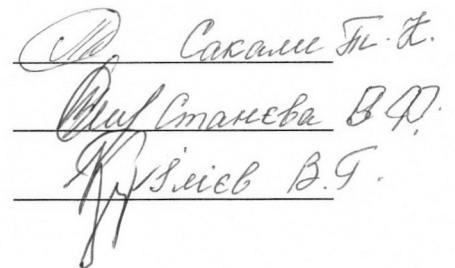 Сакали Т. Н.
Станєва В Ф.
Ілієв В. Г.